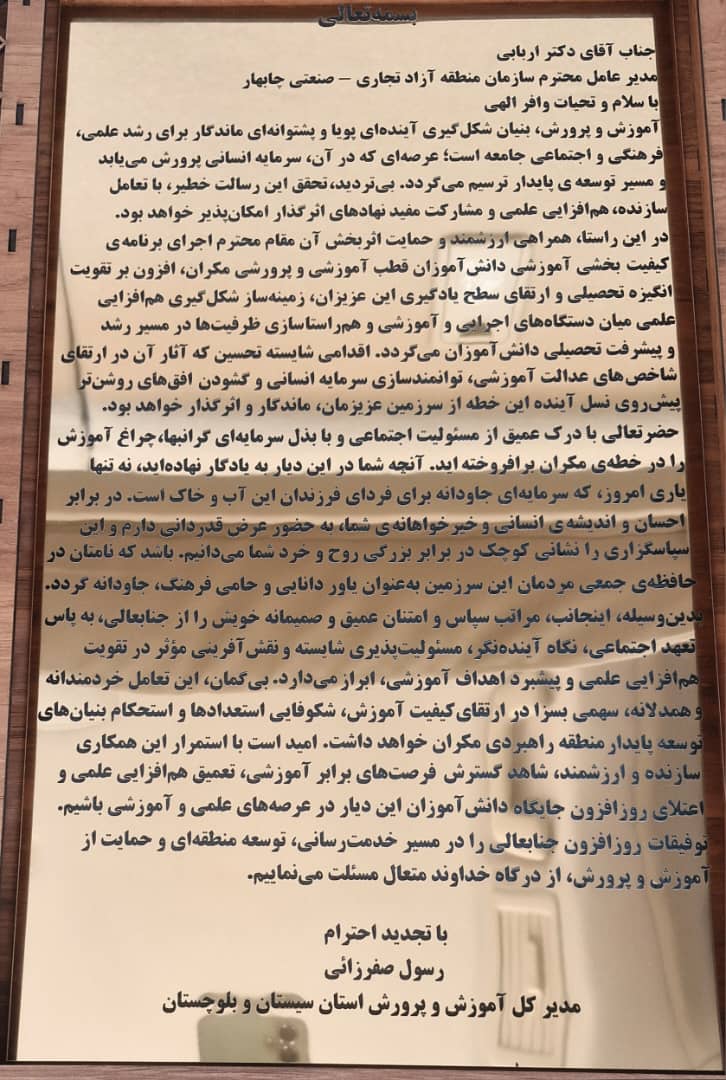 بسمه‌تعالی
جناب آقای دکتر اربابی
مدیر عامل محترم سازمان منطقه آزاد تجاری – صنعتی چابهار
با سلام و تحیات وافر الهی
آموزش و پرورش، بنیان شکل‌گیری آینده‌ای پویا و پشتوانه‌ای ماندگار برای رشد علمی،
فرهنگی و اجتماعی جامعه است؛ عرصه‌ای که در آن، سرمایه انسانی پرورش می‌یابد
و مسیر توسعه ی پایدار ترسیم می‌گردد. بی‌تردید،تحقق این رسالت خطیر، با تعامل
سازنده، هم‌افزایی علمی و مشارکت مفید نهادهای اثرگذار امکان‌پذیر خواهد بود.
در این راستا، همراهی ارزشمند و حمایت اثربخش آن مقام محترم اجرای برنامه‌ی
کیفیت بخشی آموزشی دانش‌آموزان قطب آموزشی و پرورشی مکران، افزون بر تقویت
انگیزه تحصیلی و ارتقای سطح یادگیری این عزیزان، زمینه‌ساز شکل‌گیری هم‌افزایی
علمی میان دستگاه‌های اجرایی و آموزشی و هم‌راستاسازی ظرفیت‌ها در مسیر رشد
و پیشرفت تحصیلی دانش‌آموزان می‌گردد. اقدامی شایسته تحسین که آثار آن در ارتقای
شاخص‌های عدالت آموزشی، توانمندسازی سرمایه انسانی و گشودن افق‌های روشن‌تر
پیش‌روی نسل آینده این خطه از سرزمین عزیزمان، ماندگار و اثرگذار خواهد بود.
حضرتعالی با درک عمیق از مسئولیت اجتماعی و با بذل سرمایه‌ای گرانبها،چراغ آموزش
را در خطه‌ی مکران برافروخته اید. آنچه شما در این دیار به یادگار نهاده‌اید، نه تنها
یاری امروز، که سرمایه‌ای جاودانه برای فردای فرزندان این آب و خاک است. در برابر
احسان و اندیشه‌ی انسانی و خیرخواهانه‌ی شما، به حضور عرض قدردانی دارم و این
سپاسگزاری را نشانی کوچک در برابر بزرگی روح و خرد شما می‌دانیم. باشد که نامتان در
حافظه‌ی جمعی مردمان این سرزمین به‌عنوان یاور دانایی و حامی فرهنگ، جاودانه گردد.
بدین‌وسیله، اینجانب، مراتب سپاس و امتنان عمیق و صمیمانه خویش را از جنابعالی، به پاس
تعهد اجتماعی، نگاه آینده‌نگر، مسئولیت‌پذیری شایسته و نقش‌آفرینی مؤثر در تقویت
هم‌افزایی علمی و پیشبرد اهداف آموزشی، ابراز می‌دارد. بی‌گمان، این تعامل خردمندانه
و همدلانه، سهمی بسزا در ارتقای کیفیت آموزش، شکوفایی استعدادها و استحکام بنیان‌های
توسعه پایدار منطقه راهبردی مکران خواهد داشت. امید است با استمرار این همکاری
سازنده و ارزشمند، شاهد گسترش فرصت‌های برابر آموزشی، تعمیق هم‌افزایی علمی و
اعتلای روزافزون جایگاه دانش‌آموزان این دیار در عرصه‌های علمی و آموزشی باشیم.
توفیقات روزافزون جنابعالی را در مسیر خدمت‌رسانی، توسعه منطقه‌ای و حمایت از
آموزش و پرورش، از درگاه خداوند متعال مسئلت می‌نماییم.
با تجدید احترام
رسول صفرزائی
مدیر کل آموزش و پرورش استان سیستان و بلوچستان